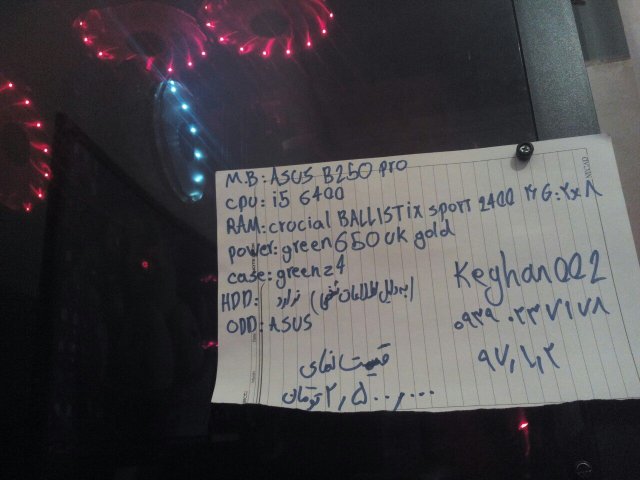 M.B: ASUS B250 pro
CPU: i5 6400
RAM: crucial BALLISTIX sport 2400 ۲x۸
power: green 650 uk gold
case: green z4
HDD: ندارد (به دلیل اطلاعات شخصی)
ODD: ASUS
Keghan002
۰۹۳۹۰۲۳۷۱۷۸
۹۷,۱,۲
قیمت نهای
۲,۵۰۰,۰۰۰ تومان